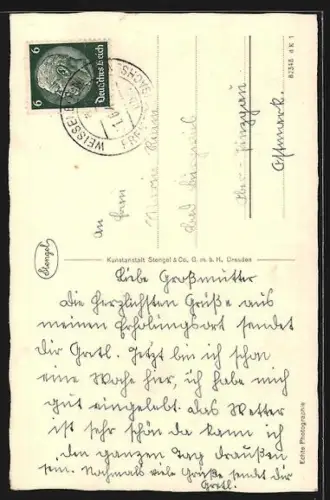 6
6
Deutsches Reich
82346 a K 1
An
Frau
Ober-Pinzgau
Ostmark.
Stengel
Kunstanstalt Stengel & Co., G. m. b. H., Dresden
Liebe Großmutter
Die herzlichsten Grüße aus
meinen Erholungsort sendet
dir Gretl. Jetzt bin ich schon
eine Woche hier, ich habe mich
gut eingelebt. Das Wetter
ist sehr schön da kann ich
den ganzen Tag draußen
sein. Nochmals viele Grüße sendet dir
Gretl.
Echte Photographie